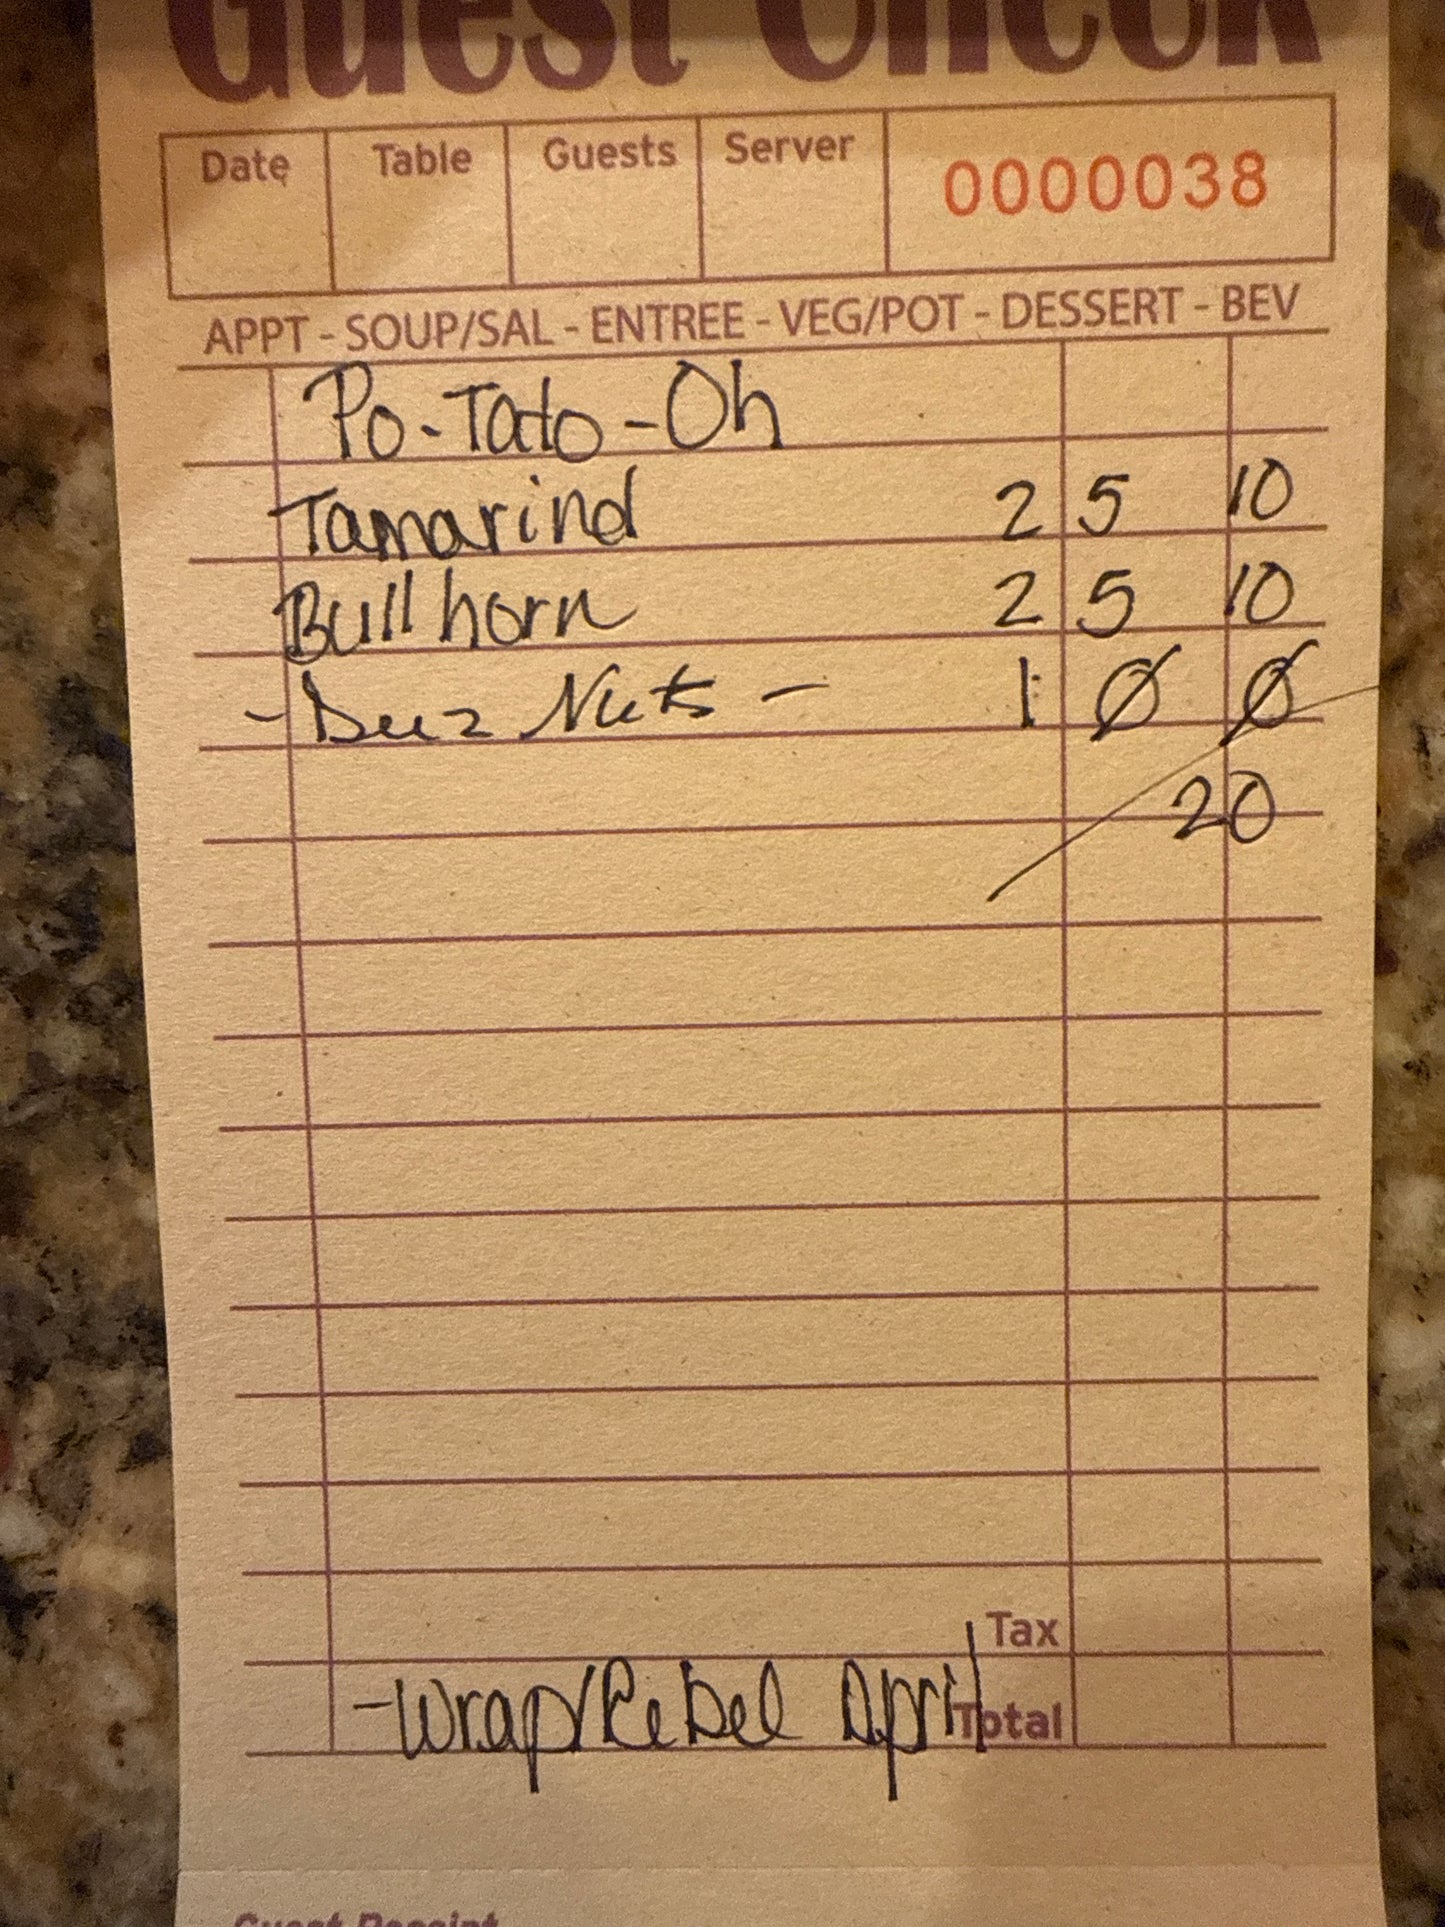 Guest Check
Date Table Guests Server 0000038
APPT - SOUP/SAL - ENTREE - VEG/POT - DESSERT - BEV
Po-Tato-Oh
Tamarind 2 5 10
Bullhorn 2 5 10
- Deez Nuts - 1 0 0
20
Tax
-Wrap/Rebel April
Total
Guest Receipt